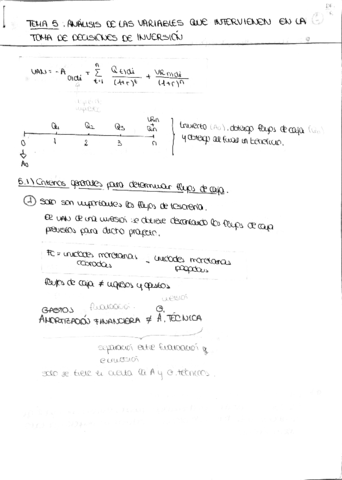 TEMA 5. ANÁLISIS DE LAS VARIABLES QUE INTERVIENEN EN LA
TOMA DE DECISIONES DE INVERSIÓN
VAN = -A0|di + Σ Qt|di / (1+r)^t + VRn|di / (1+r)^n
n
t=1
Q1 Q2 Q3 VRn Qn
Invierto (A0), obtengo flujos de caja
y obtengo al final un beneficio.
0 1 2 3 n
A0
5.1) Criterios generales para determinar flujos de caja.
① Solo son importantes los flujos de tesorería.
El VAN de una inversión se obtiene descontando los flujos de caja
previstos para dicho proyecto.
FC = unidades monetarias cobradas - unidades monetarias pagadas
Flujos de caja ≠ ingresos y gastos
GASTOS
AMORTIZACIÓN FINANCIERA ≠ A. TÉCNICA
separación entre financiación y
inversión